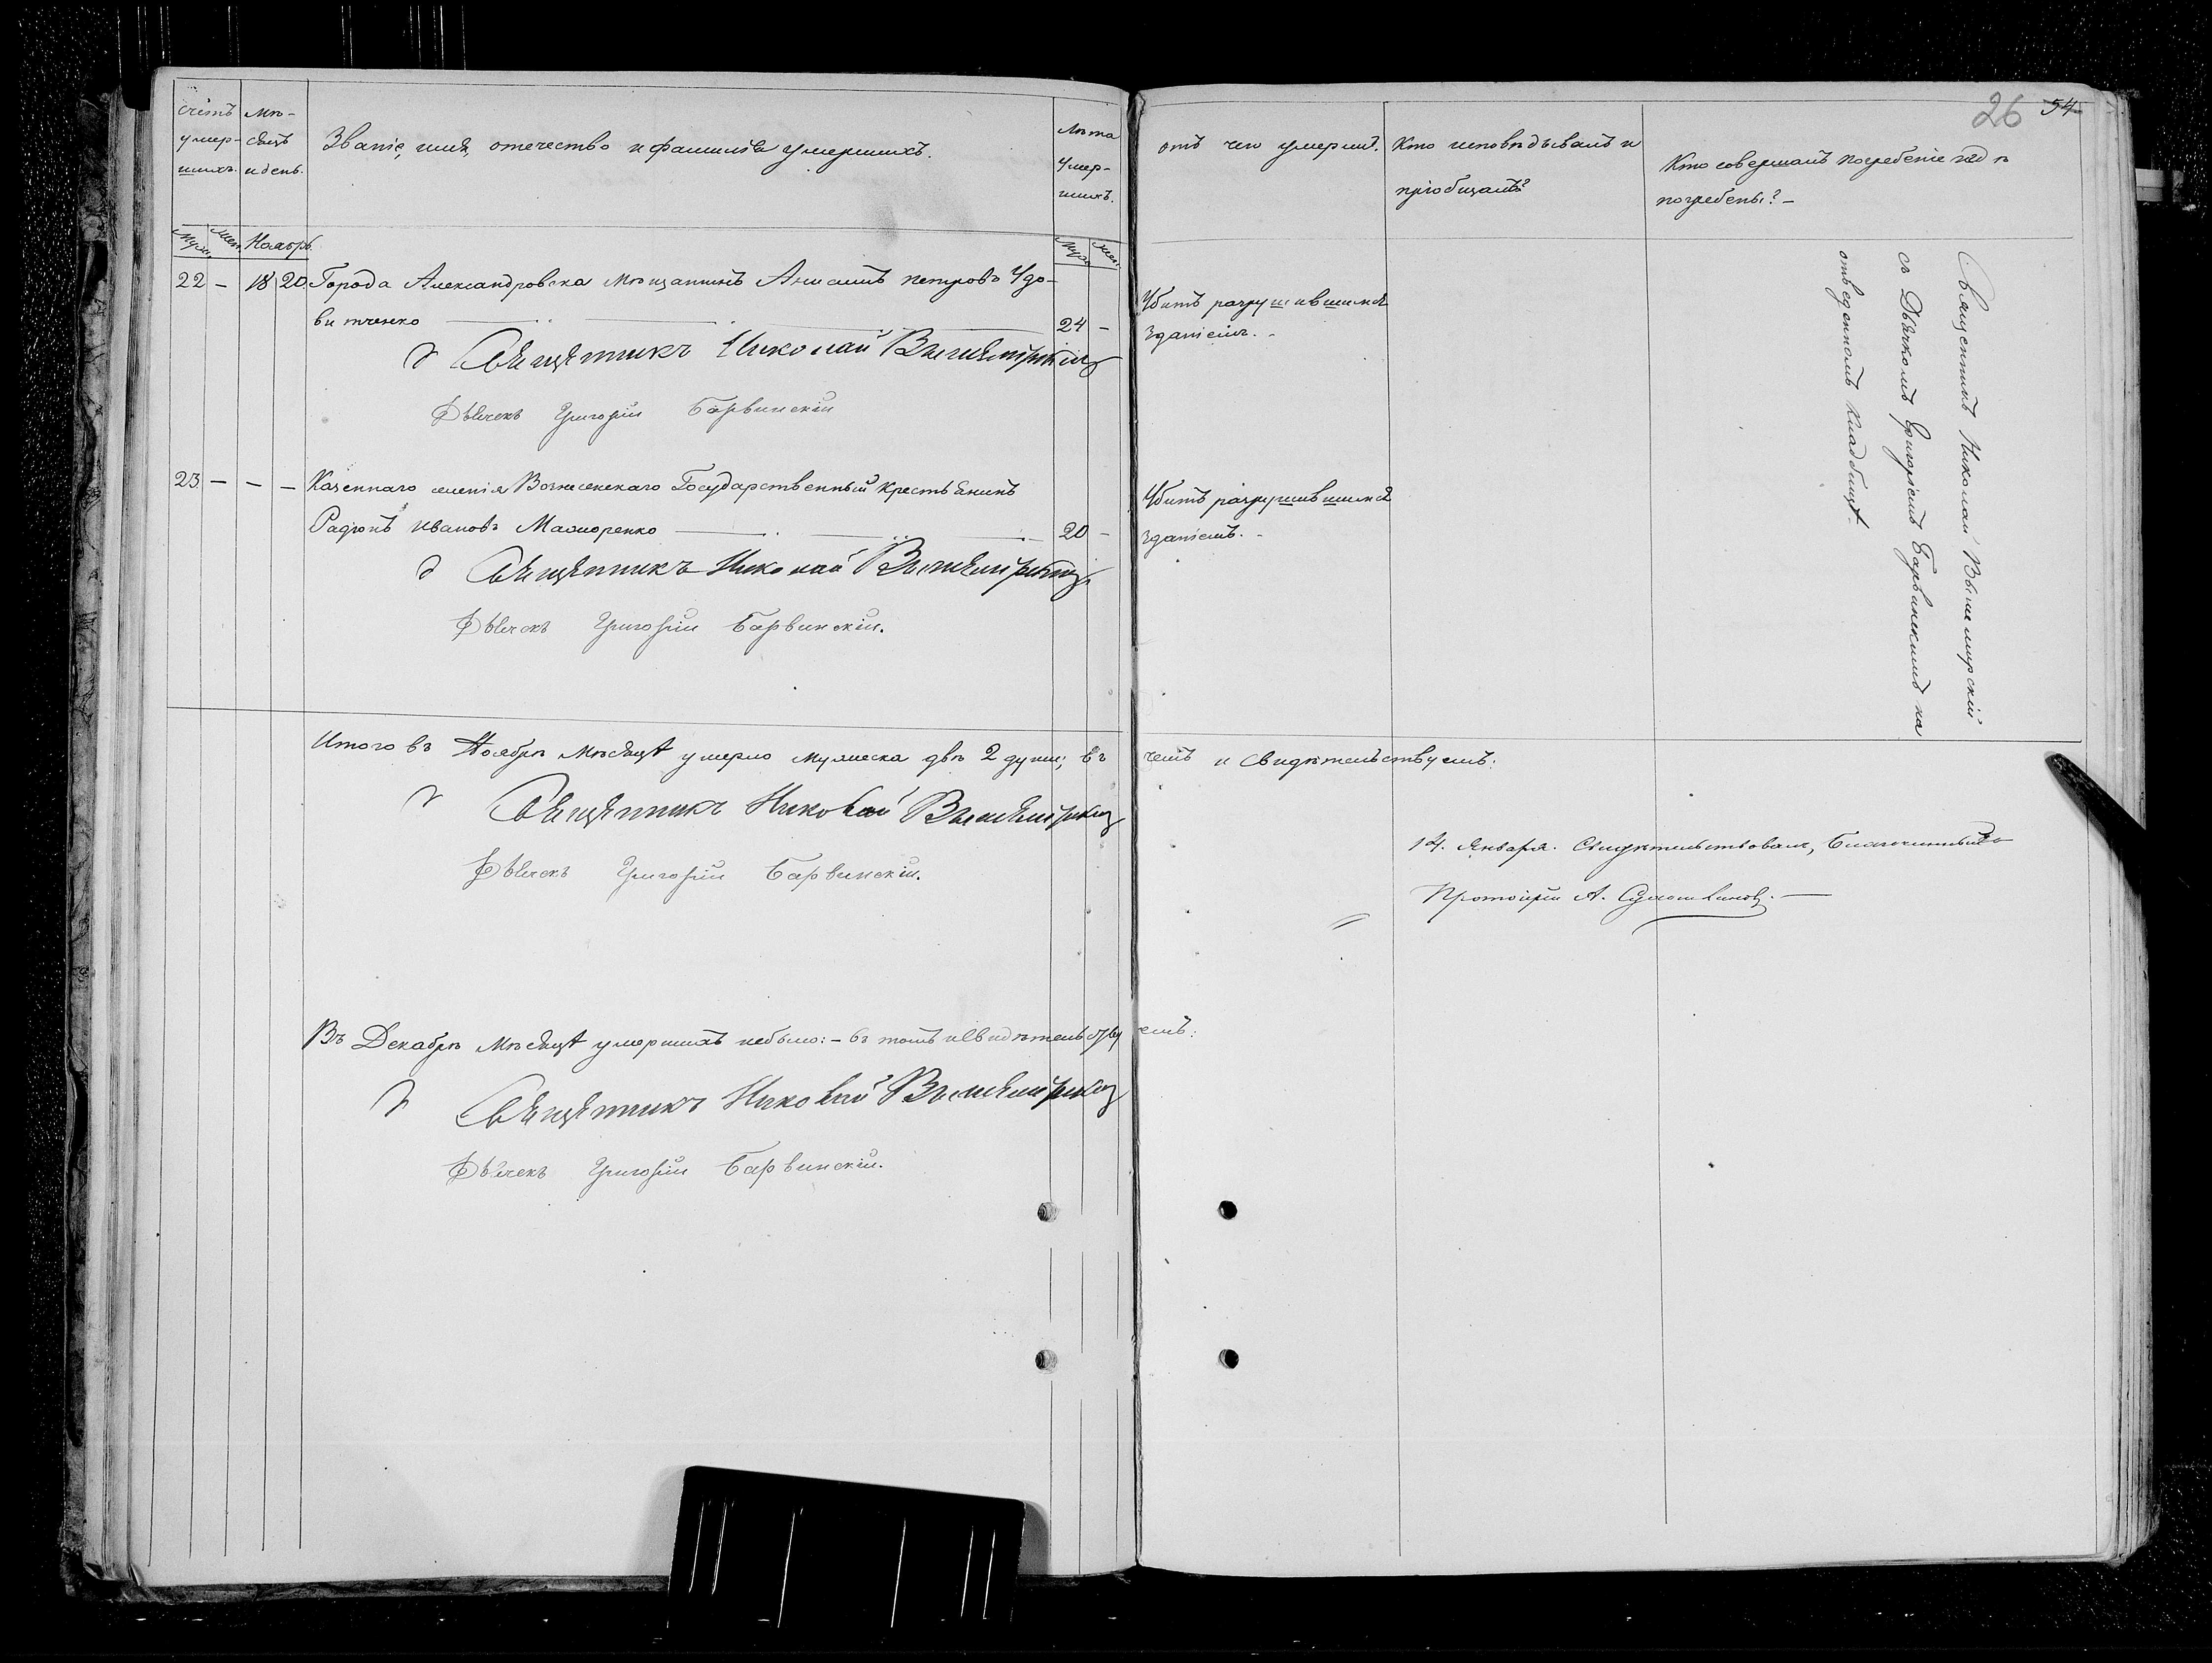 26 54
Счетъ умер- шихъ.
Мѣ- сяцъ и день.
Званіе, имя, отечество и фамилія умершихъ.
Лѣта умер- шихъ.
отъ чего умерли?
Кто исповѣдывалъ и пріобщалъ?
Кто совершалъ погребеніе и гдѣ
погребены? -
Муж. Жен. Ноябрь. Муж. Жен.
22 - 18 20 Города Александровска мѣщанинъ петровъ Удо-
виченко 24 -
Убитъ разрушившимся
зданіемъ. -
Священникъ Николай Вышемірскій
Дьячекъ Григорій Барвинскій
23 - - - Казеннаго селенія Вознесенскаго Государственный крестьянинъ
Радіонъ Ивановъ 20 -
Убитъ разрушившимся
зданіемъ. -
Священникъ Николай Вышемірскій
Дьячекъ Григорій Барвинскій.
Священникъ Николай Вышемирскій
съ Дьячкомъ Григоріемъ Барвинскимъ на
отведенномъ кладбищѣ.
Итого въ Ноябрѣ Мѣсяцѣ умерло мужеска двѣ 2 души; въ чемъ и свидѣтельствуемъ:
Священникъ Николай Вышемірскій
Дьячекъ Григорій Барвинскій.
14. Января. Свидѣтельствовалъ, Благочинный
Протоіерей А.
Въ Декабрѣ Мѣсяцѣ умершихъ небыло: - въ томъ и свидѣтельствуемъ:
Священникъ Николай Вышемірскій
Дьячекъ Григорій Барвинскій.